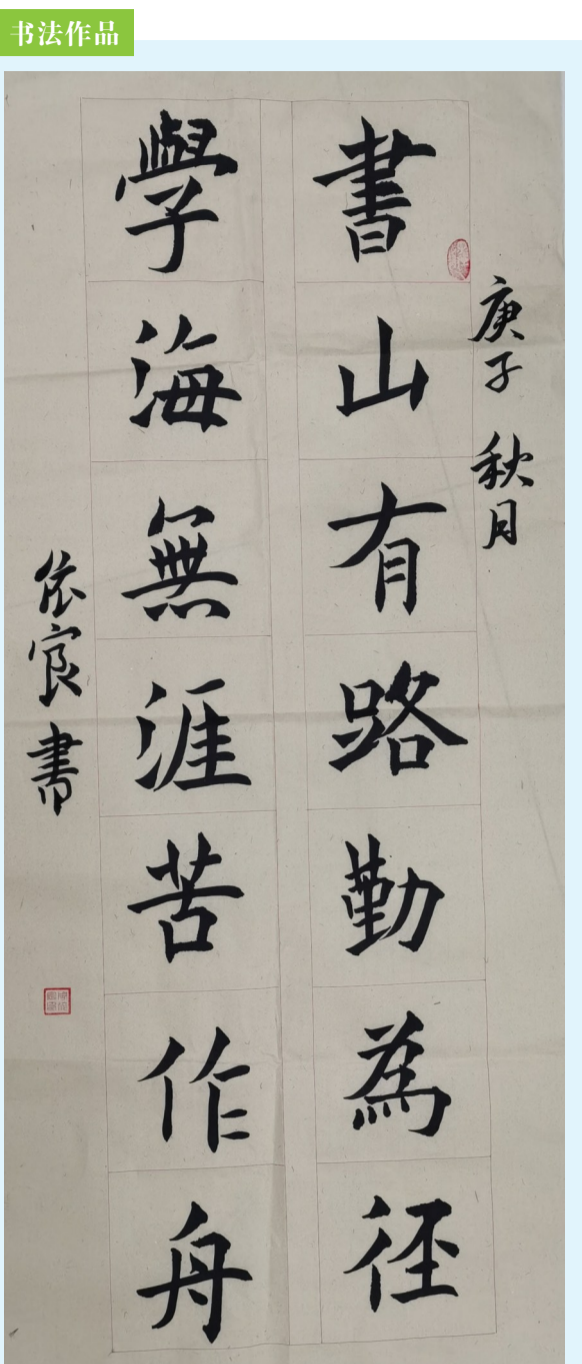 书法作品
庚子 秋月
書山有路勤為徑
學海無涯苦作舟
依宸書